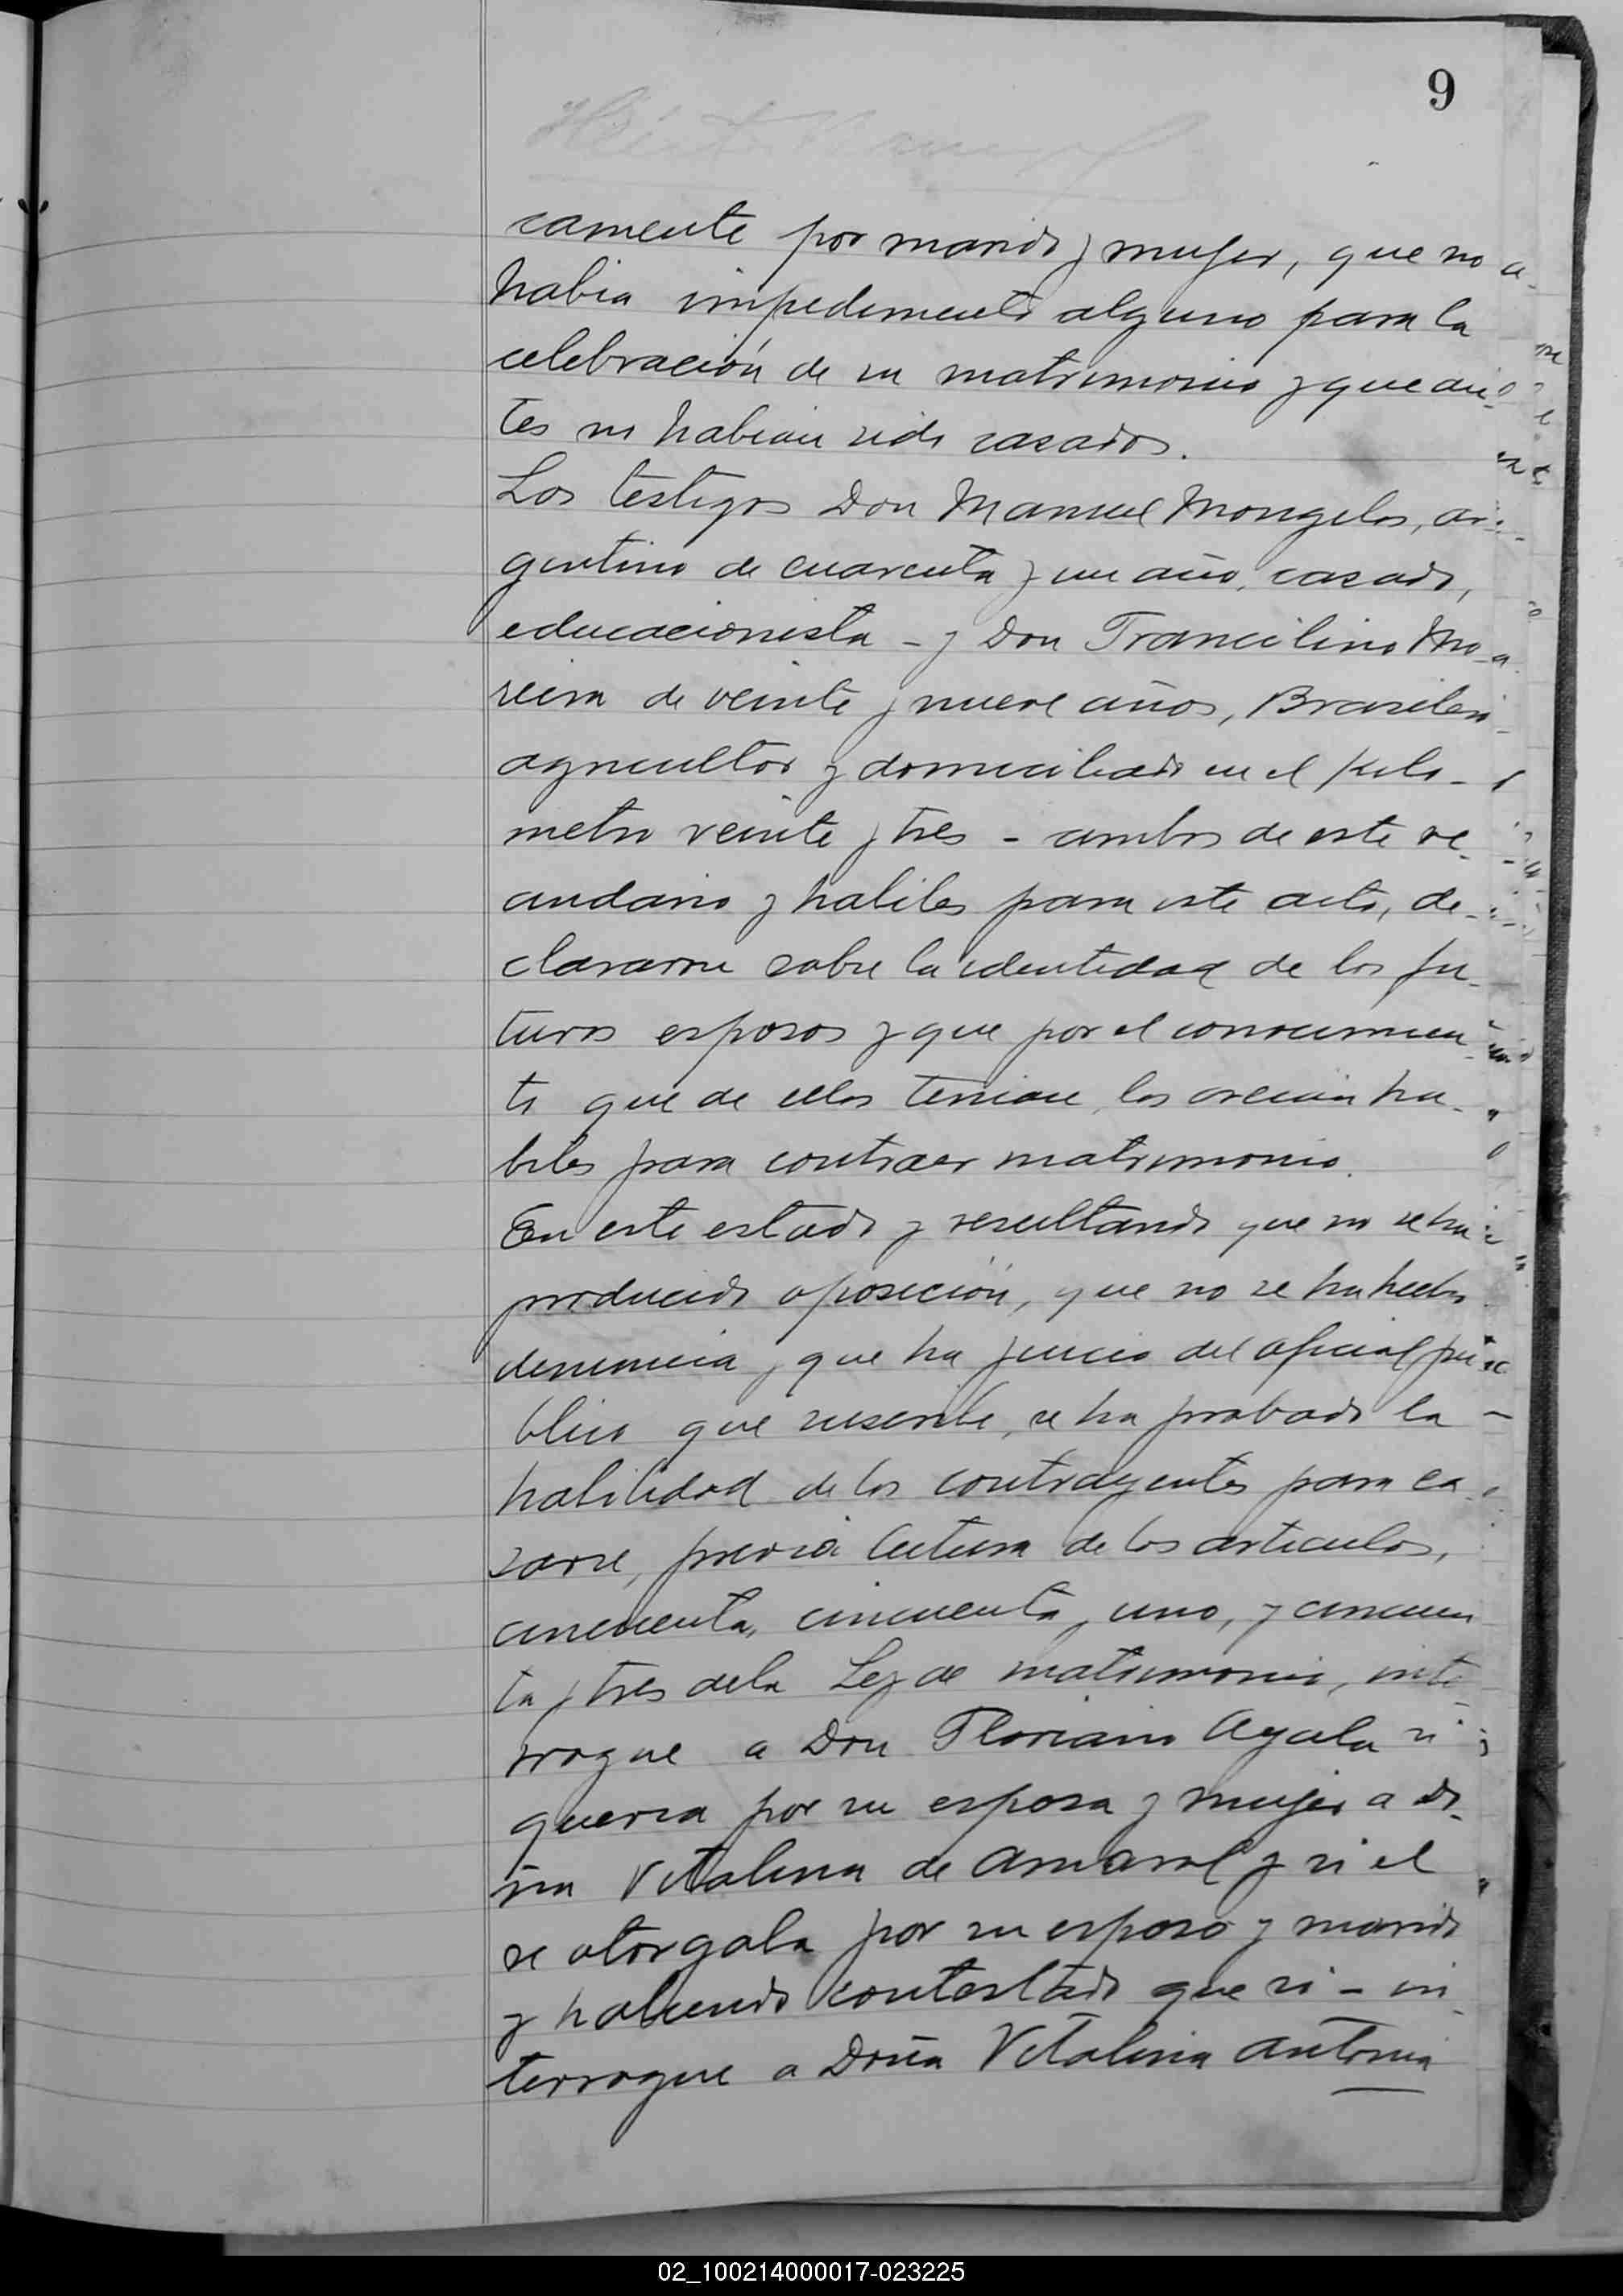 9
camente por marido y mujer, que no
habia impedimento alguno para la
celebración de su matrimonio y que an-
tes no habian sido casados.
Los testigos Don Manuel Mongelos, ar-
gentino de cuarenta y un año, casado,
educacionista - y Don Trancilino Mo-
reira de veinte y nueve años, Brasilero
agricultor y domiciliado en el Kilo-
metro veinte y tres - ambos de este ve-
cindario y habiles para este acto, de-
clararon sobre la identidad de los fu-
turos esposos y que por el conocimien-
to que de ellos tenian, los creian ha-
biles para contraer matrimonio.
En este estado y resultando que no se ha
producido oposición, que no se ha hecho
denuncia y que ha juicio del oficial pú
blico que suscribe, se ha probado la
habilidad de los contrayentes para ca
sarse, previa lectura de los articulos,
cincuenta, cincuenta y uno, y cincuen
ta y tres de la Ley de matrimonio, inte
rrogue a Don Floriano Ayala si
queria por su esposa y mujer a Do-
ña Vitalina de Amaral y si el
se otorgaba por su esposo y marido
y habiendo contestado que si - in
terrogue a Doña Vitalina Antonia
02_100214000017-023225